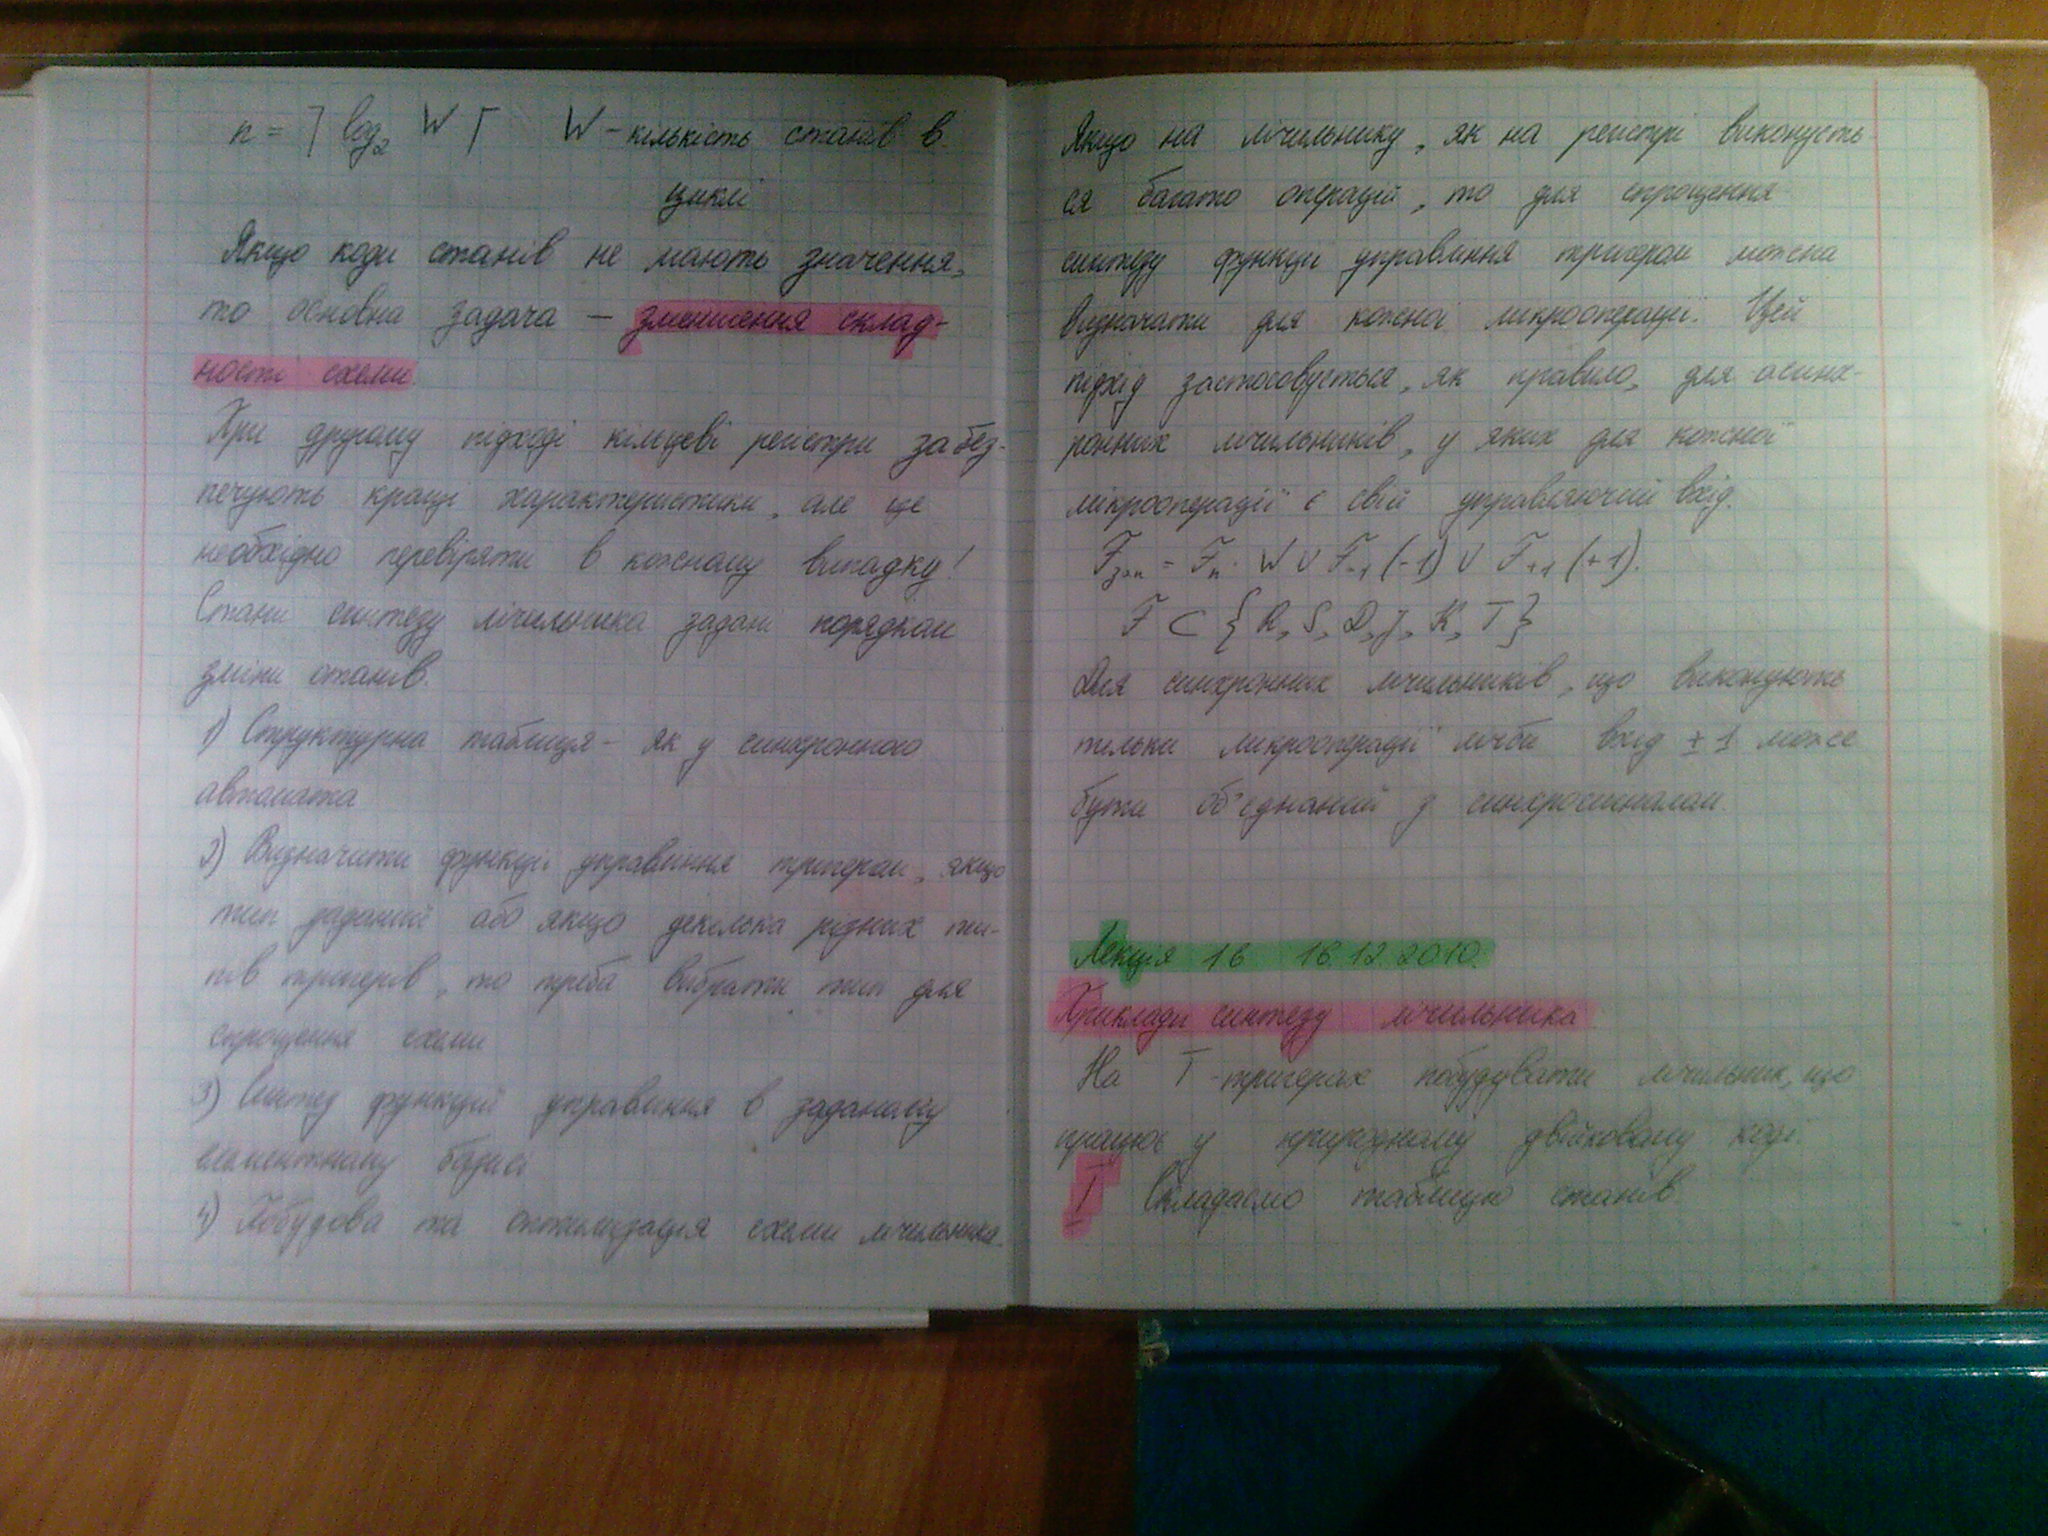 n = ⌉ log₂ W ⌈ W - кількість станів в
циклі
Якщо коди станів не мають значення,
то основна задача — зменшення склад-
ності схеми.
При другому підході кінцеві регістри забез-
печують кращі характеристики, але це
необхідно перевіряти в кожному випадку!
Стани синтезу лічильника задані порядком
зміни станів.
1) Структурна таблиця - як у синхронного
автомата
2) Визначити функції управління тригером, якщо
тип заданий або якщо декілька різних ти-
пів тригерів, то треба вибрати тип для
спрощення схеми
3) Синтез функцій управління в заданому
елементному базисі
4) Побудова та оптимізація схеми лічильника.
Якщо на лічильнику, як на регістрі виконуєть
ся багато операцій, то для спрощення
синтезу функції управління тригером можна
визначати для кожної мікрооперації. Цей
підхід застосовується, як правило, для асинх-
ронних лічильників, у яких для кожної
мікрооперації є свій управляючий вхід.
Fзаг = Fп · W ∪ F-1 (-1) ∪ F+1 (+1).
F ⊂ {R, S, D, J, K, T}
Для синхронних лічильників, що виконують
тільки мікрооперації лічби вхід ± 1 може
бути об'єднаний з синхросигналом.
Лекція 16 16.12.2010.
Приклади синтезу лічильника
На T-тригерах побудувати лічильник, що
працює у природному двійковому коді.
I Складаємо таблицю станів.